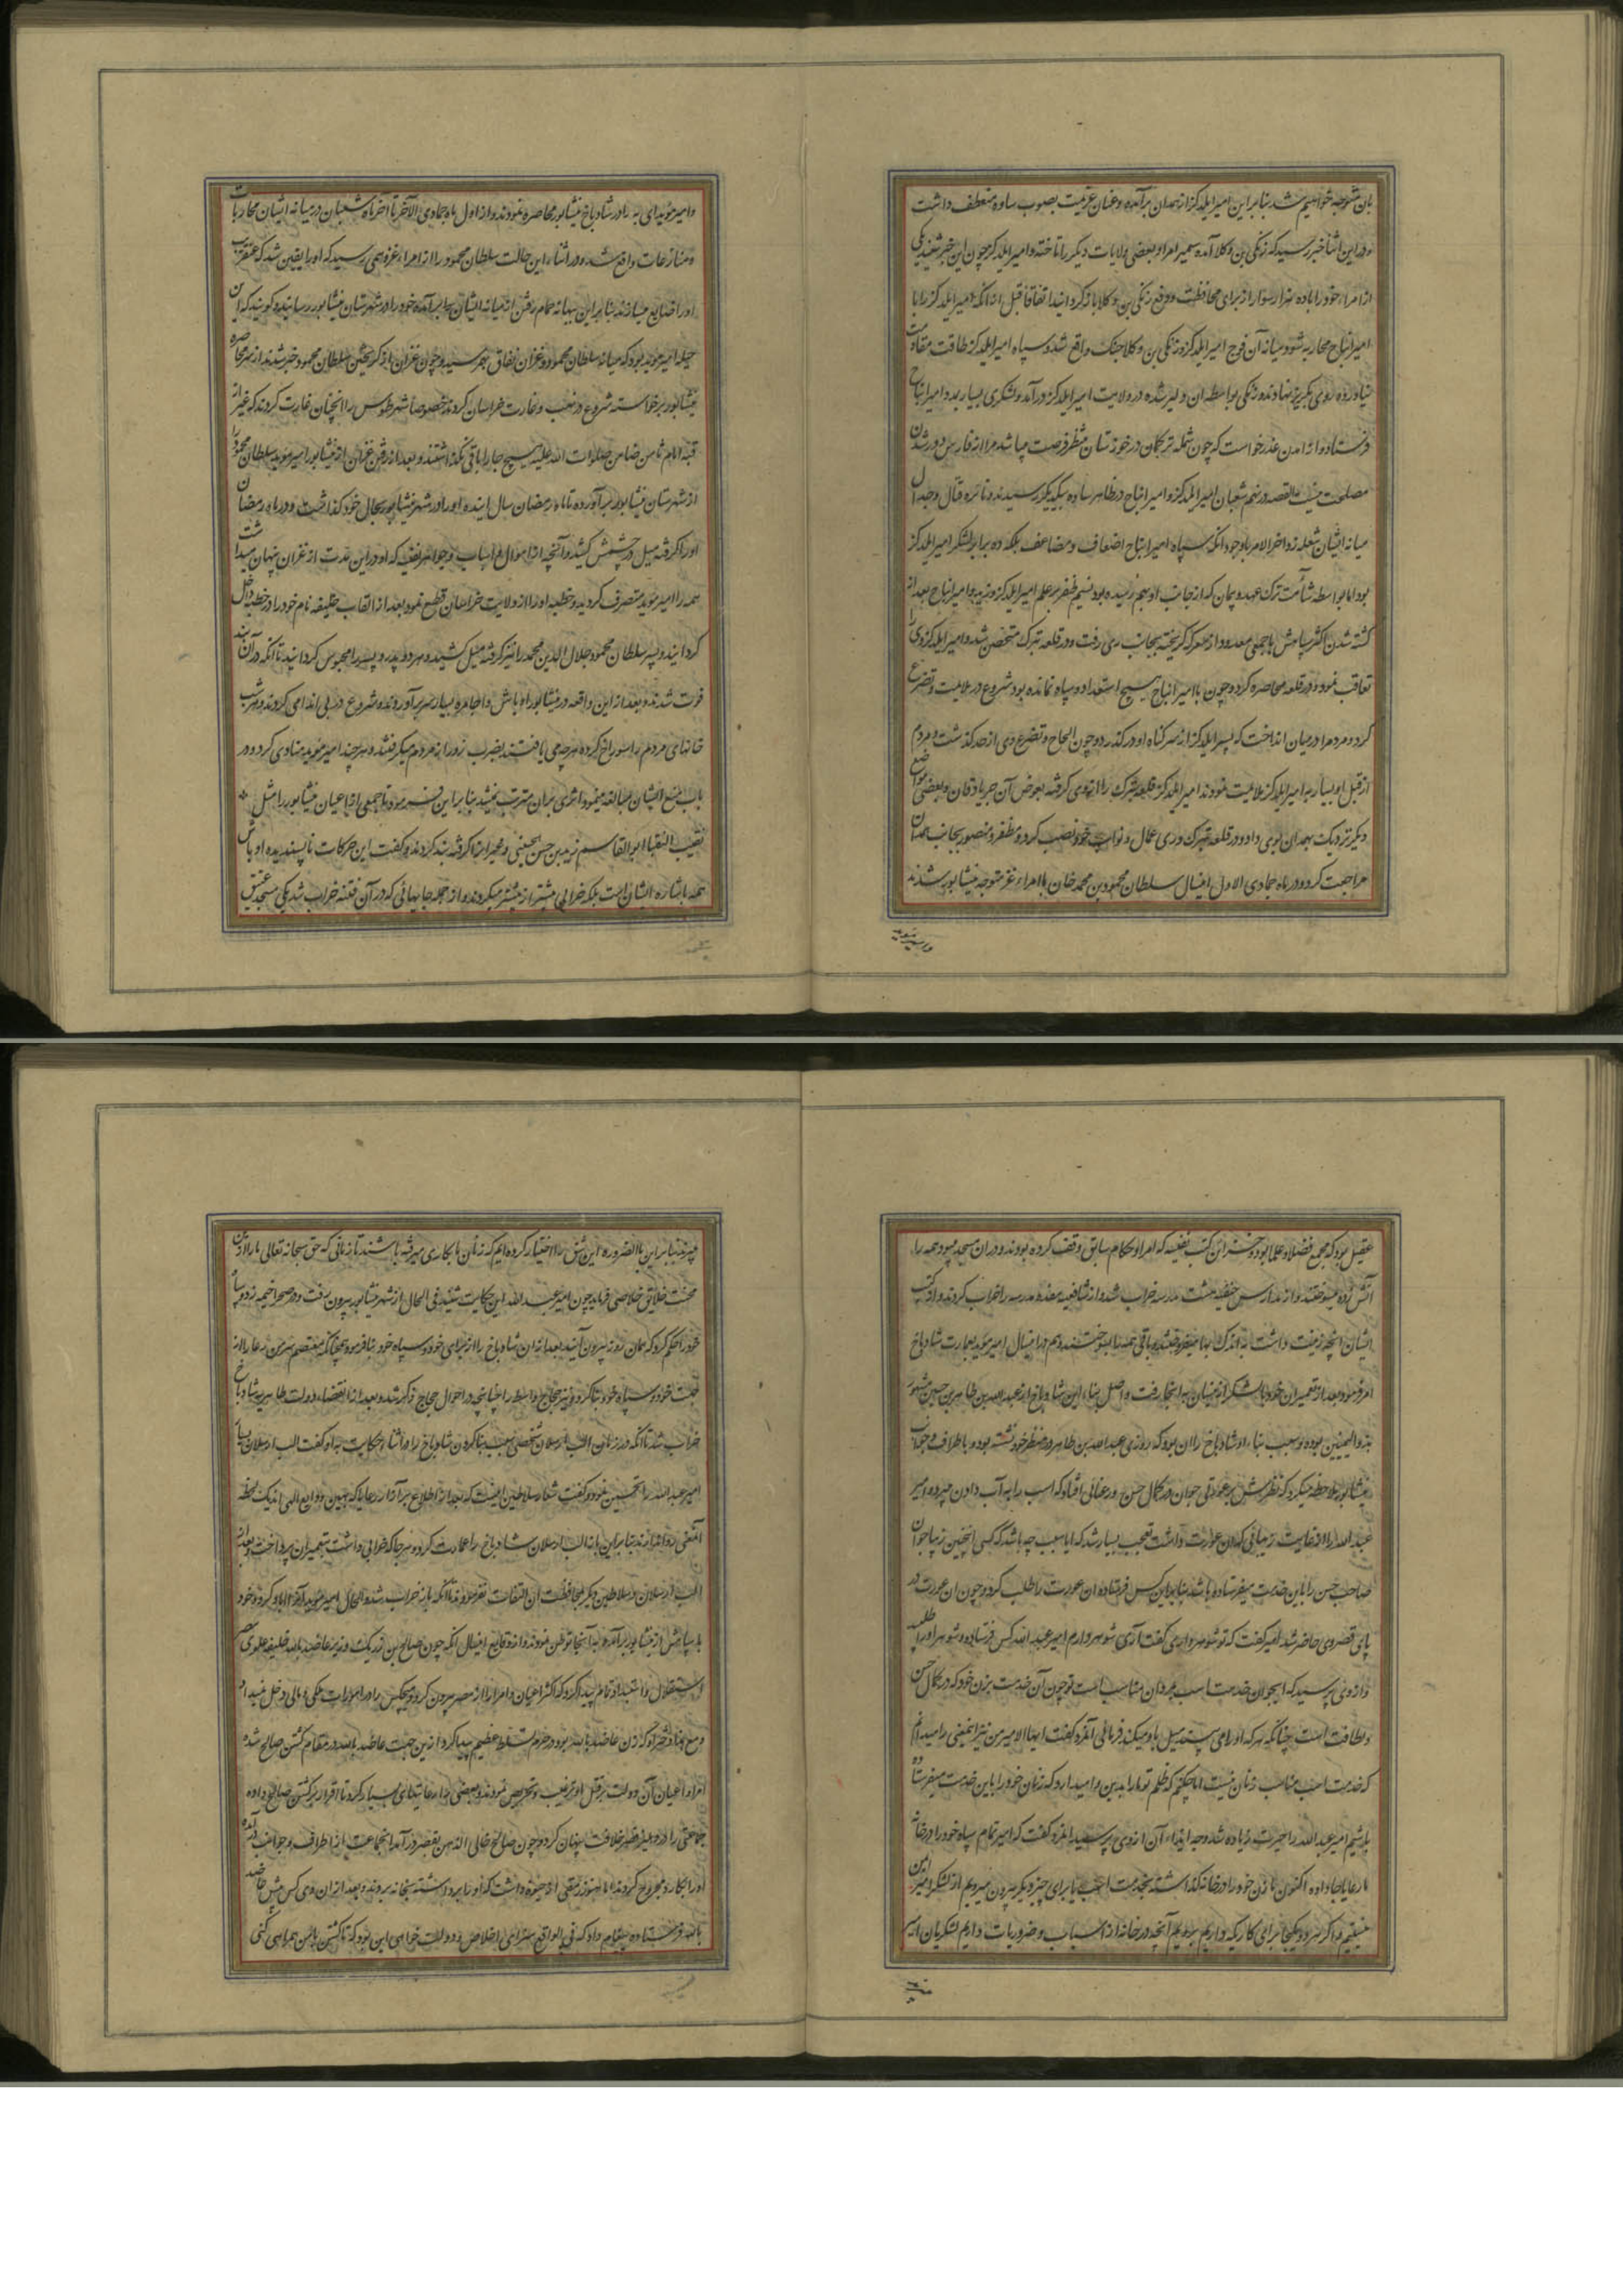 بان متوجه خواهیم شد بنا براین امیر ایلدکز از همدان برآمده و عنان عزیمت بصوب ساوه منعطف داشت
و در این اثنا خبر رسید که زنکی بن وکلا آمده سمیرم را و بعضی ولایات دیکر را تاخته و امیر ایلدکز چون این خبر شنید یکی
از امراء خود را با ده هزار سوار از برای محافظت و دفع زنکی بن وکلا باز کردانید اتفاقا قبل از آنکه امیر ایلدکز را با
امیر ایناج محاربه شود میانه آن فوج امیر ایلدکز و زنکی بن وکلا جنک واقع شد و سپاه امیر ایلدکز طاقت مقاومت
نیاورده روی بکریز نهادند و زنکی بواسطه آن دلیر شده در ولایت امیر ایلدکز درآمد و لشکری بسیار بد و امیر ایناج
فرستاد و از آمدن عذر خواست که چون شمله ترکمان در خوزستان منتظر فرصت میباشد مرا از فارس دور شدن
مصلحت نیست القصه در نهم شعبان امیر ایلدکز و امیر ایناج در ظاهر ساوه بیکدیکر رسیدند و نائره قتال و جدال
میانه ایشان شعله زد و آخر الامر با وجود آنکه سپاه امیر ایناج اضعاف و مضاعف بلکه ده برابر لشکر امیر ایلدکز
بود اما بواسطه شآمت ترک عهد و پیمان که از جانب او بهم رسیده بود نسیم ظفر بر علم امیر ایلدکز وزید و امیر ایناج بعد از
کشته شدن اکثر سپاهش با جمعی معدود از معرکه کریخته بجانب ری رفت و در قلعه تبرک متحصن شد و امیر ایلدکز وی را
تعاقب نموده در قلعه محاصره کرد و چون با امیر ایناج هیچ استعداد و سپاه نمانده بود شروع در ملایمت و تضرع
کرد و مردم را در میان انداخت که پسر ایلدکز از سر کناه او درکذرد و چون الحاح و تضرع وی از حد کذشت و مردم
از قبل او بسیار به امیر ایلدکز ملایمت نمودند امیر ایلدکز قلعه تبرک را از وی کرفته بعوض آن جرباذقان و بعضی مواضع
دیکر نزدیک بهمدان بوی داد و در قلعه تبرک و ری عمال و نواب خود نصب کرد و مظفر و منصور بجانب همدان
مراجعت کرد و در ماه جمادی الاول این سال سلطان محمود بن محمد خان با امراء غز متوجه نیشابور شدند
و امیر موید
و امیر موید ای به را در شادیاخ نیشابور محاصره نمودند و از اول ماه جمادی الآخر تا آخر ماه شعبان در میانه ایشان محاربات
و منازعات واقع شد و در اثناء این حالت سلطان محمود را از امراء غز وهمی رسید که او را یقین شد که عنقریب
او را ضایع میسازند بنا براین ببهانه حمام رفتن از میانه ایشان برآمده خود را در شهرستان نیشابور رسانید و کویند که این
حیله امیر موید بود که میانه سلطان محمود و غزان نفاق بهم رسید و چون غزان از کریختن سلطان محمود خبر شدند از سر محاصره
نیشابور برخواسته شروع در نهب و غارت خراسان کردند خصوصا شهر طوس را آنچنان غارت کردند که غیر از
قبه امام ثامن ضامن صلوات الله علیه هیچ جا را باقی نکذاشتند و بعد از رفتن غزان از نیشابور امیر موید سلطان محمود را
از شهرستان نیشابور برآورده تا ماه رمضان سال آینده او را در شهر نیشابور بحال خود کذاشت و در ماه رمضان
او را کرفته میل در چشمش کشید و آنچه از اموال و اسباب و جواهر نفیسه که او در این مدت از غزان پنهان میداشت
همه را امیر موید متصرف کردید و خطبه او را از ولایت خراسان قطع نمود بعد از القاب خلیفه نام خود را در خطبه داخل
کردانید و پسر سلطان محمود جلال الدین محمد را نیز کرفته میل کشید و هر دو پدر و پسر را محبوس کردانید تا آنکه در آن بند
فوت شدند و بعد از این واقعه در نیشابور اوباش و اجامره بسیار سر برآورده و شروع در بی اندامی کردند و هر شب
خانهای مردم را سوراخ کرده هر چه می یافتند بضرب زور از مردم میکرفتند و هر چند امیر موید منادی کرد و در
باب منع ایشان مبالغه مینمود اثری بر آن مترتب نمیشد بنا براین فرمود تا جمعی از اعیان نیشابور را مثل
نقیب النقباء ابو القاسم زید بن حسن الحسینی و غیره را کرفته بند کردند و کفت این حرکات ناپسندیده اوباش
همه باشاره ایشانست بلکه خرابی بیشتر از پیشتر میکردند و از جمله جایهائی که در آن فتنه خراب شد یکی مسجد عتیق
عقیل بود که مجمع فضلا و علما بود و خزاین کتب نفیسه که امرا و حکام سابق وقف کرده بودند و در آن مسجد میبود همه را
آتش زده سوختند و از مدارس حنفیه هشت مدرسه خراب شد و از شافعیه هفده مدرسه را خراب کردند و از کتب
ایشان آنچه زینت داشت به اندک بها میفروختند و باقی همه را سوختند و هم در این سال امیر موید بعمارت شادیاخ
امر فرمود و بعد از تعمیر آن خود با لشکر از نیشابور به آنجا رفت و اصل بناء این شادیاخ از عبدالله بن طاهر بن حسین مشهور
بذوالیمینین بوده و سبب بناء او شادیاخ را آن بود که روزی عبدالله بن طاهر در منظر خود نشسته بود و باطراف و جوانب
نیشابور ملاحظه میکرد که نظرش بر عورتی جوان در کمال حسن و رعنائی افتاد که اسب را به آب دادن میبرد و امیر
عبدالله را از غایت زیبائی که آن عورت داشت تعجب بسیار شد که آیا سبب چه باشد که کسی اینچنین زیبا جوان
صاحب حسن را باین خدمت میفرستاده باشد بنا براین کس فرستاده آن عورت را طلب کرد و چون آن عورت در
پای قصر وی حاضر شد امیر کفت که تو شوهر داری کفت آری شوهر دارم امیر عبدالله کس فرستاده و شوهر او را طلبید
و از وی پرسید که ای جوان خدمت اسب بمردان مناسب است تو چون آن خدمت بزن خود که در کمال حسن
و لطافت است چنانکه هر که او را می بیند میل باو میکند فرمائی آنمرد کفت ایها الامیر من نیز اینمعنی را میدانم
که خدمت اسب مناسب زنان نیست اما چکنم که ظلم تو ما را بدین وامیدارد که زنان خود را باین خدمت میفرستاده
باشیم امیر عبدالله را حیرت زیاده شد وجه ایذاء آن از وی پرسید آنمرد کفت که امیر تمام سپاه خود را در خانه
ما رعایا جا داده اکنون ما زن خود را در خانه کذاشته بخدمت اسب یا برای چیز دیکر بیرون میرویم از لشکر امیر ایمن
نیستیم و اکر هر دو یکجا برای کاریکه داریم برویم آنچه در خانه از اسباب و ضروریات داریم لشکریان امیر
میبرند
میبرند بنا براین بالضروره این شق را اختیار کرده ایم که زنان ما بکاری میرفته باشند تا زمانی که حق سبحانه تعالی ما را از این
محنت خلائق خلاصی فرماید چون امیر عبدالله این حکایت شنید فی الحال از شهر نیشابور بیرون رفت و در صحرا خیمه زد و سپاه
خود را حکم کرد که همان روز بیرون آیند بعد از آن شادیاخ را از برای خود و سپاه خود بنا فرمود همچنانکه معتصم سر من رءا را از
جهت خود و سپاه خود بنا کرد و نیز حجاج واسط را چنانچه در احوال حجاج ذکر شد و بعد از انقضاء دولت طاهریه شادیاخ
خراب شد تا آنکه در زمان الب ارسلان شخصی سبب بنا کردن شادیاخ را در اثناء حکایت به او کفت الب ارسلان بسیار
امیر عبدالله را تحسین نمود و کفت شعار سلاطین اینست که بعد از اطلاع بر آزار رعایا که بهین ودایع الهی اند یک لحظه
آنمعنی روا ندارند بنا براین باز الب ارسلان شادیاخ را عمارت کرد و هر جا که خرابی داشت بتعمیر آن پرداخت و بعد از
الب ارسلان سلاطین دیکر بمحافظت آن التفات نفرمودند تا آنکه باز خراب شد و الحال امیر موید آنرا آباد کرد و خود
با سپاهش از نیشابور برآمد و به آنجا توطن نمودند و از وقایع این سال آنکه چون صالح بن رزیک وزیر عاضد بالله خلیفه علوی مصر
استقلال و استبداد تمام پیدا کرد که اکثر اعیان و امرا را از مصر بیرون کرد و هیچکس را در امورات ملکی و مالی دخل نمیداد
و مع هذا دخترش که زن عاضد بالله بود در حرم تسلط عظیم پیدا کرد از ین جهت عاضد بالله در مقام کشتن صالح شده
امرا و اعیان آن دولت بر قتل او ترغیب و تحریص نمودند و بعضی را رعایتهای بسیار کرد تا قرار بر کشتن صالح داده
جماعتی را در دهلیز قصر خلافت پنهان کرد و چون صالح خالی الذهن بقصر درآمد آنجماعت از اطراف و جوانب درآمده
او را بکارد مجروح کردند اما هنوز رمقی از حیوة داشت که او را برداشته بخانه بردند و بعد از آن وی کس پیش عاضد
بالله فرستاده پیغام داد که فی الواقع سزای اخلاص و دولت خواهی این بود که تا کشتن با من همراهی کنی